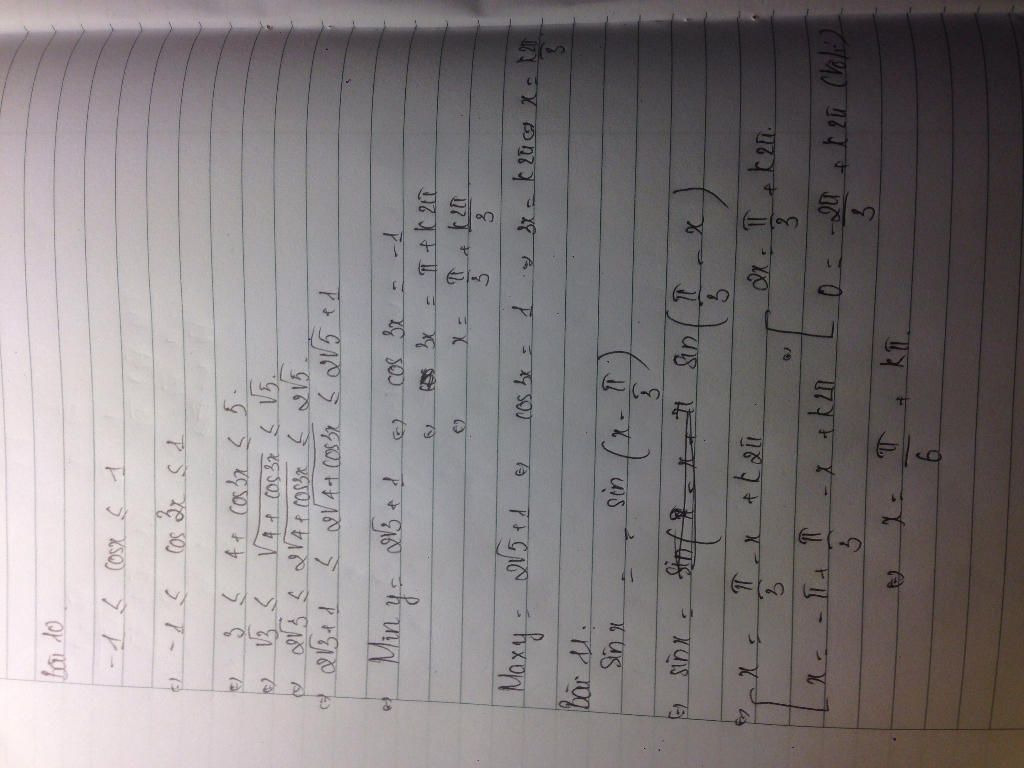 Bài 10.
-1 ≤ cosx ≤ 1
⇔ -1 ≤ cos 3x ≤ 1
⇔ 3 ≤ 4 + cos3x ≤ 5.
⇔ √3 ≤ √4 + cos3x ≤ √5.
⇔ 2√3 ≤ 2√4+cos3x ≤ 2√5.
⇔ 2√3+1 ≤ 2√4+cos3x ≤ 2√5 + 1
⇔ Min y = 2√3 + 1 ⇔ cos 3x = -1
⇔ 3x = π + k2π
⇔ x = π/3 + k2π/3
Maxy = 2√5 + 1 ⇔ cos3x = 1 ⇔ 3x = k2π ⇔ x = k2π/3
Bài 11.
Sin x = - sin (x - π/3)
⇔ sinx = sin (π/3 - x)
⇔ [ x = π/3 - x + k2π ⇔ [ 2x = π/3 + k2π.
x = - π + π/3 - x + k2π 0 = -2π/3 + k2π (Vô lí)
⇔ x = π/6 + kπ.